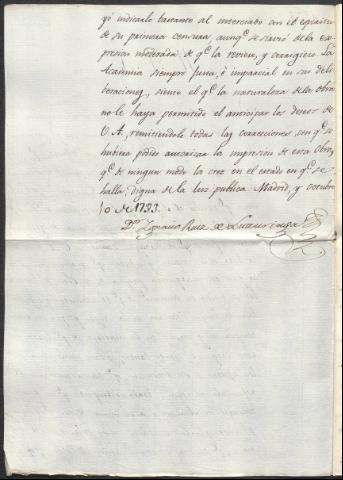 yó indicarlo bastante al interesado en el espiritu
de su primera censura, aunq.e se sirvió de la ex-
presion moderada de q.e la reviese, y corrigiese. La
Academia siempre justa, é imparcial en sus deli-
beraciones, siente el q.e la naturaleza de la obra
no le haya permitido el anticipar los deseos de
V. A. remitiendole todas las correcciones con q.e se
hubiera podido autorizar la impresion de esta Obra,
q.e de ningun modo la cree en el estado en q.e se
halla, digna de la luz publica. Madrid, y octubre
10 de 1793.
D.n Ignacio Ruiz de Luzuriaga